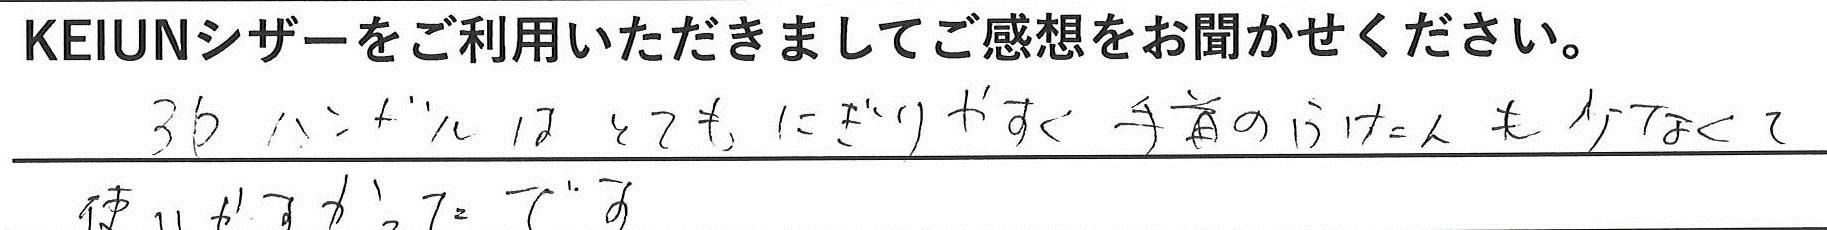 KEIUNシザーをご利用いただきましてご感想をお聞かせください。
3Dハンドルはとてもにぎりやすく手首のふたんも少なくて
使いやすかったです